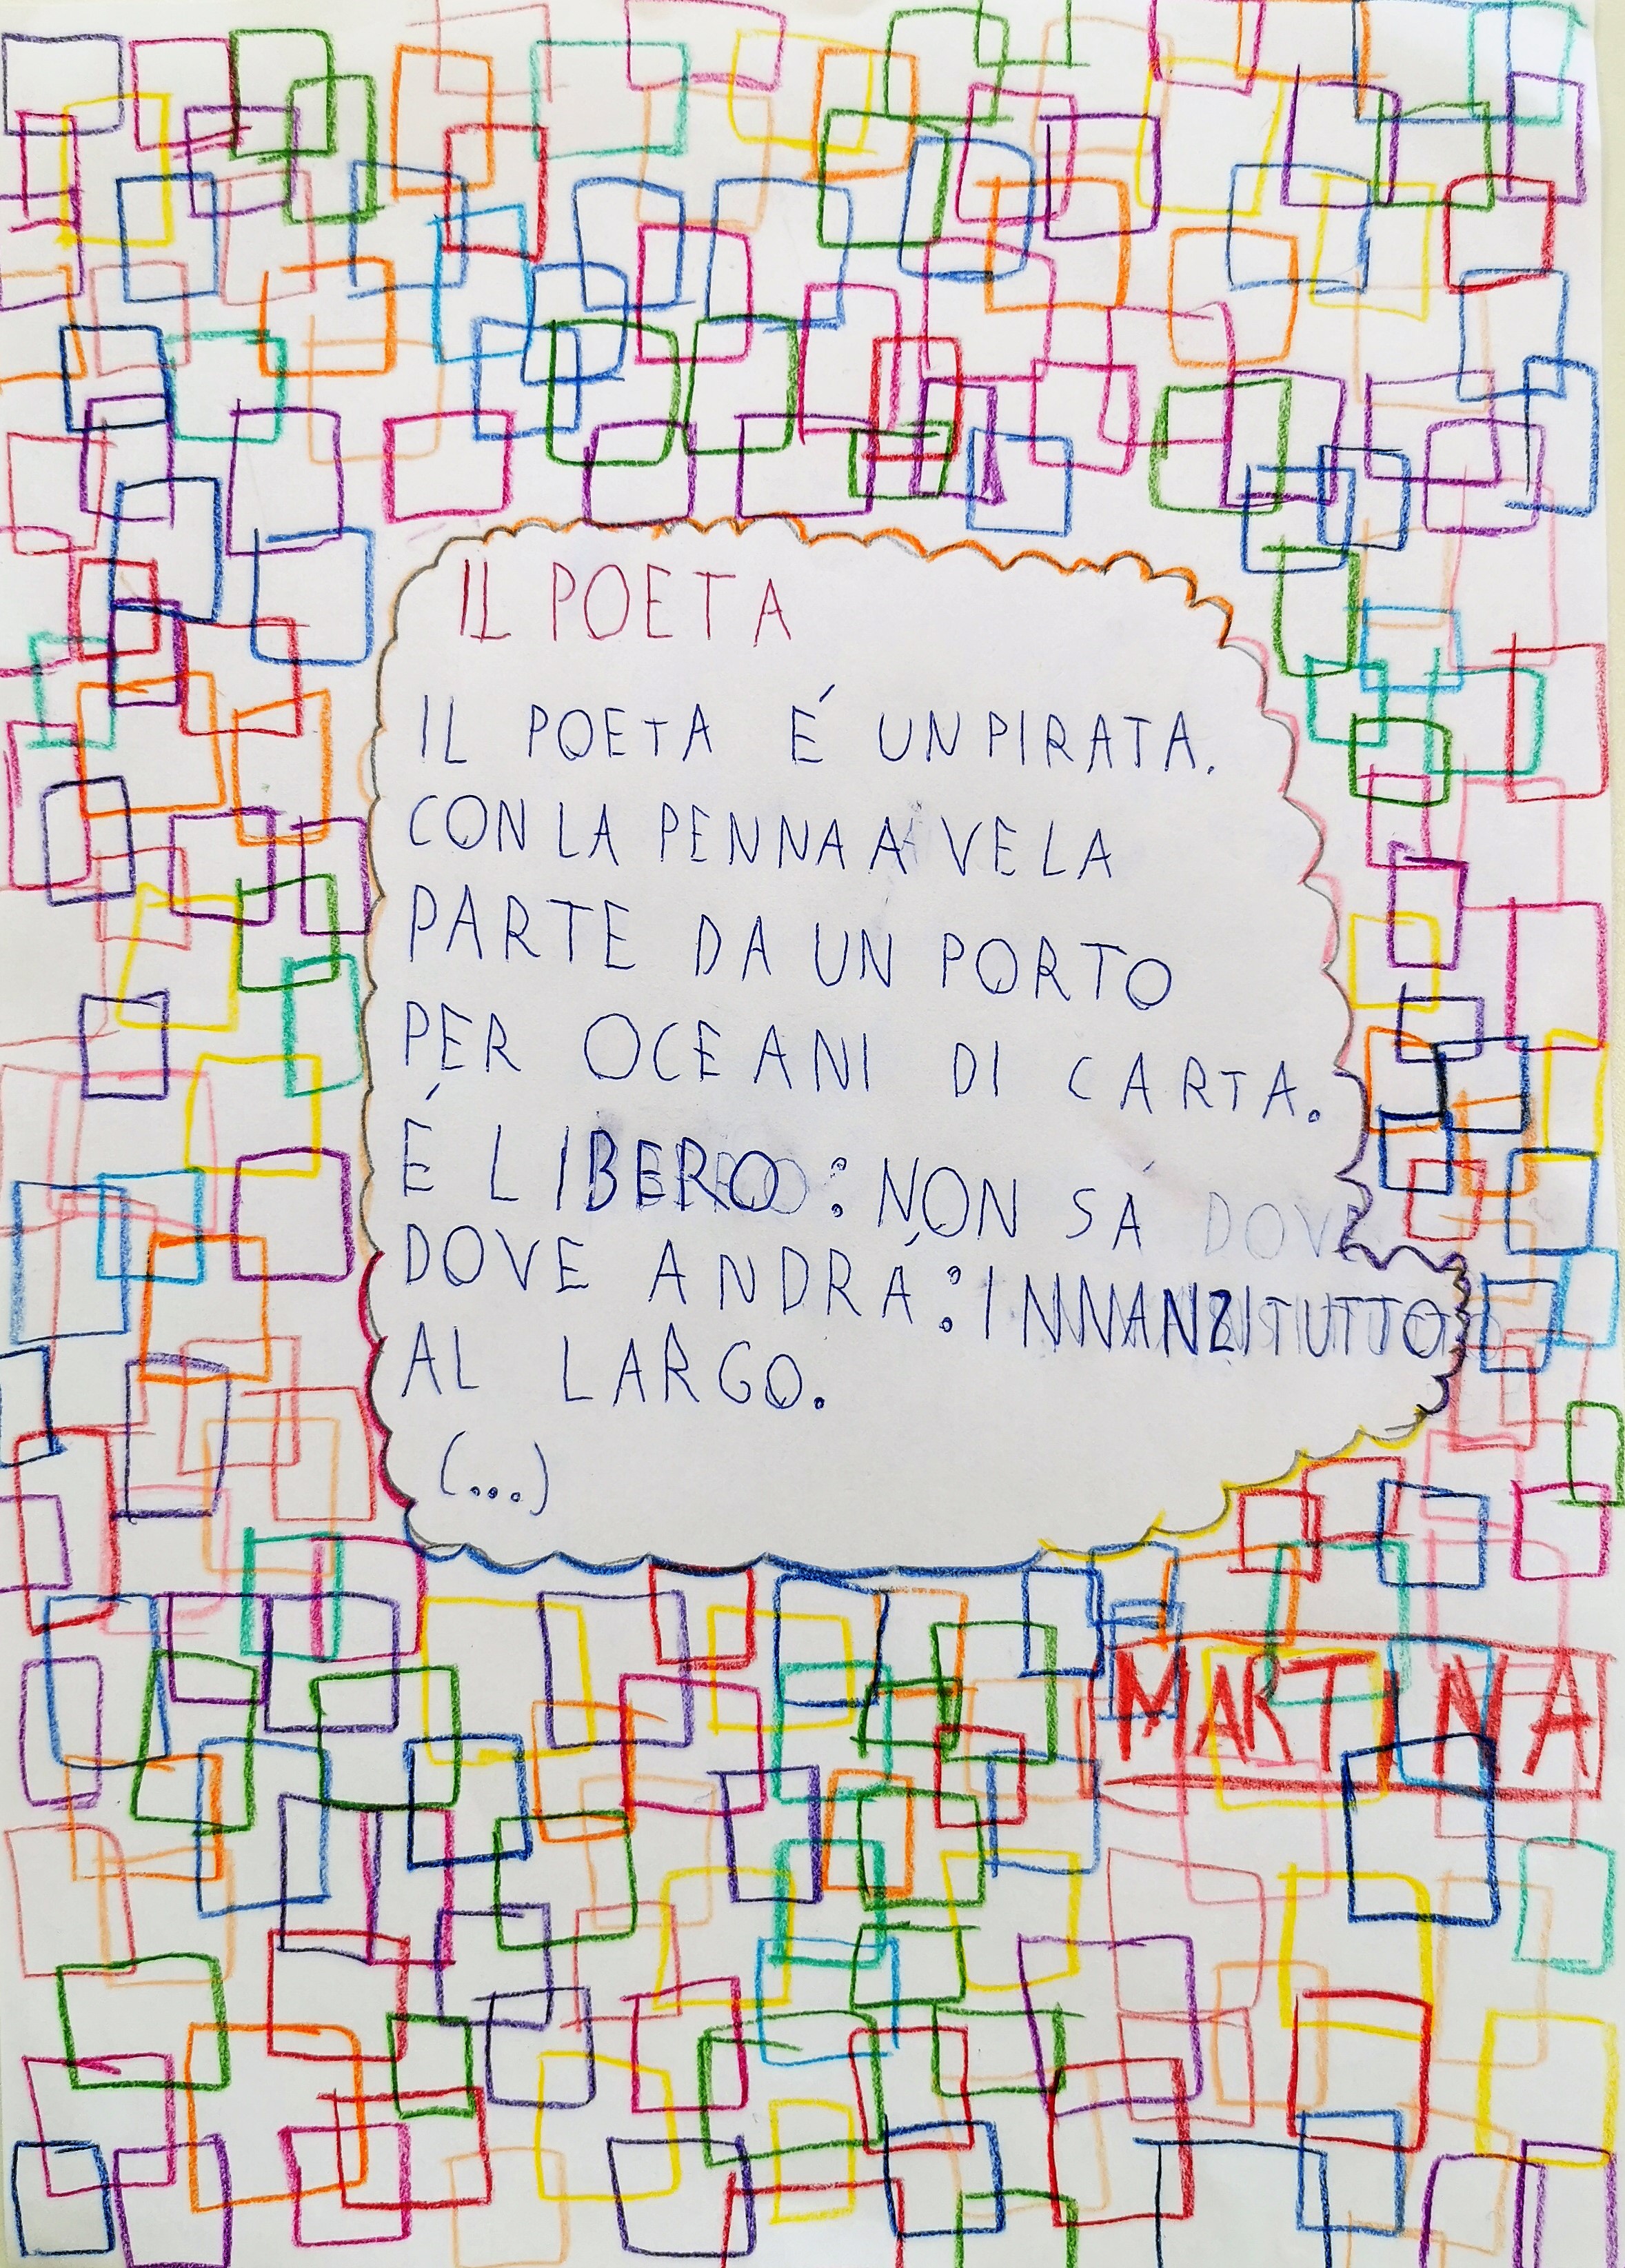 IL POETA
IL POETA É UN PIRATA.
CON LA PENNA A VELA
PARTE DA UN PORTO
PER OCEANI DI CARTA.
É LIBERO: NON SÁ DOVE
DOVE ANDRÁ: INNANZITUTTO
AL LARGO.
(...)
MARTINA